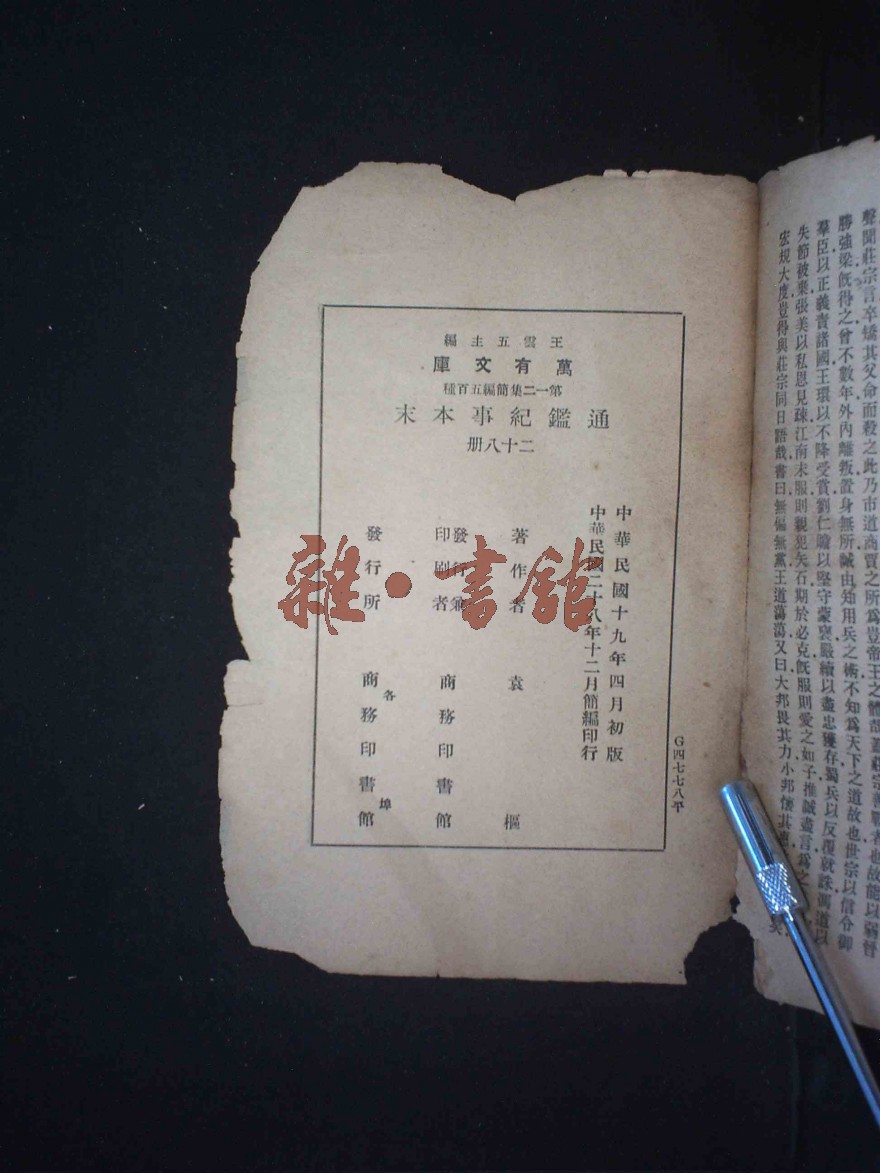 王雲五主編
萬有文庫
第一二集簡編五百種
通鑑紀事本末
二十八册
中華民國十九年四月初版
中華民國二十八年十二月簡編印行
著作者 袁樞
發行兼
印刷者 商務印書館
發行所 各埠
商務印書館
G四七七八平
雜·書館
聲聞莊宗言卒矯其父命而殺之此乃市道商賈之所爲豈帝王之體哉蓋莊宗善戰者也故能以弱晉
勝強梁旣得之曾不數年外內離叛置身無所誠由知用兵之術不知爲天下之道故也世宗以信令御
羣臣以正義責諸國王環以不降受賞劉仁贍以堅守蒙褒嚴續以盡忠獲存蜀兵以反覆就誅馮道以
失節被棄張美以私恩見疎江南未服則親犯矢石期於必克旣服則愛之如子推誠盡言爲之
宏規大度豈得與莊宗同日語哉書曰無偏無黨王道蕩蕩又曰大邦畏其力小邦懷其德